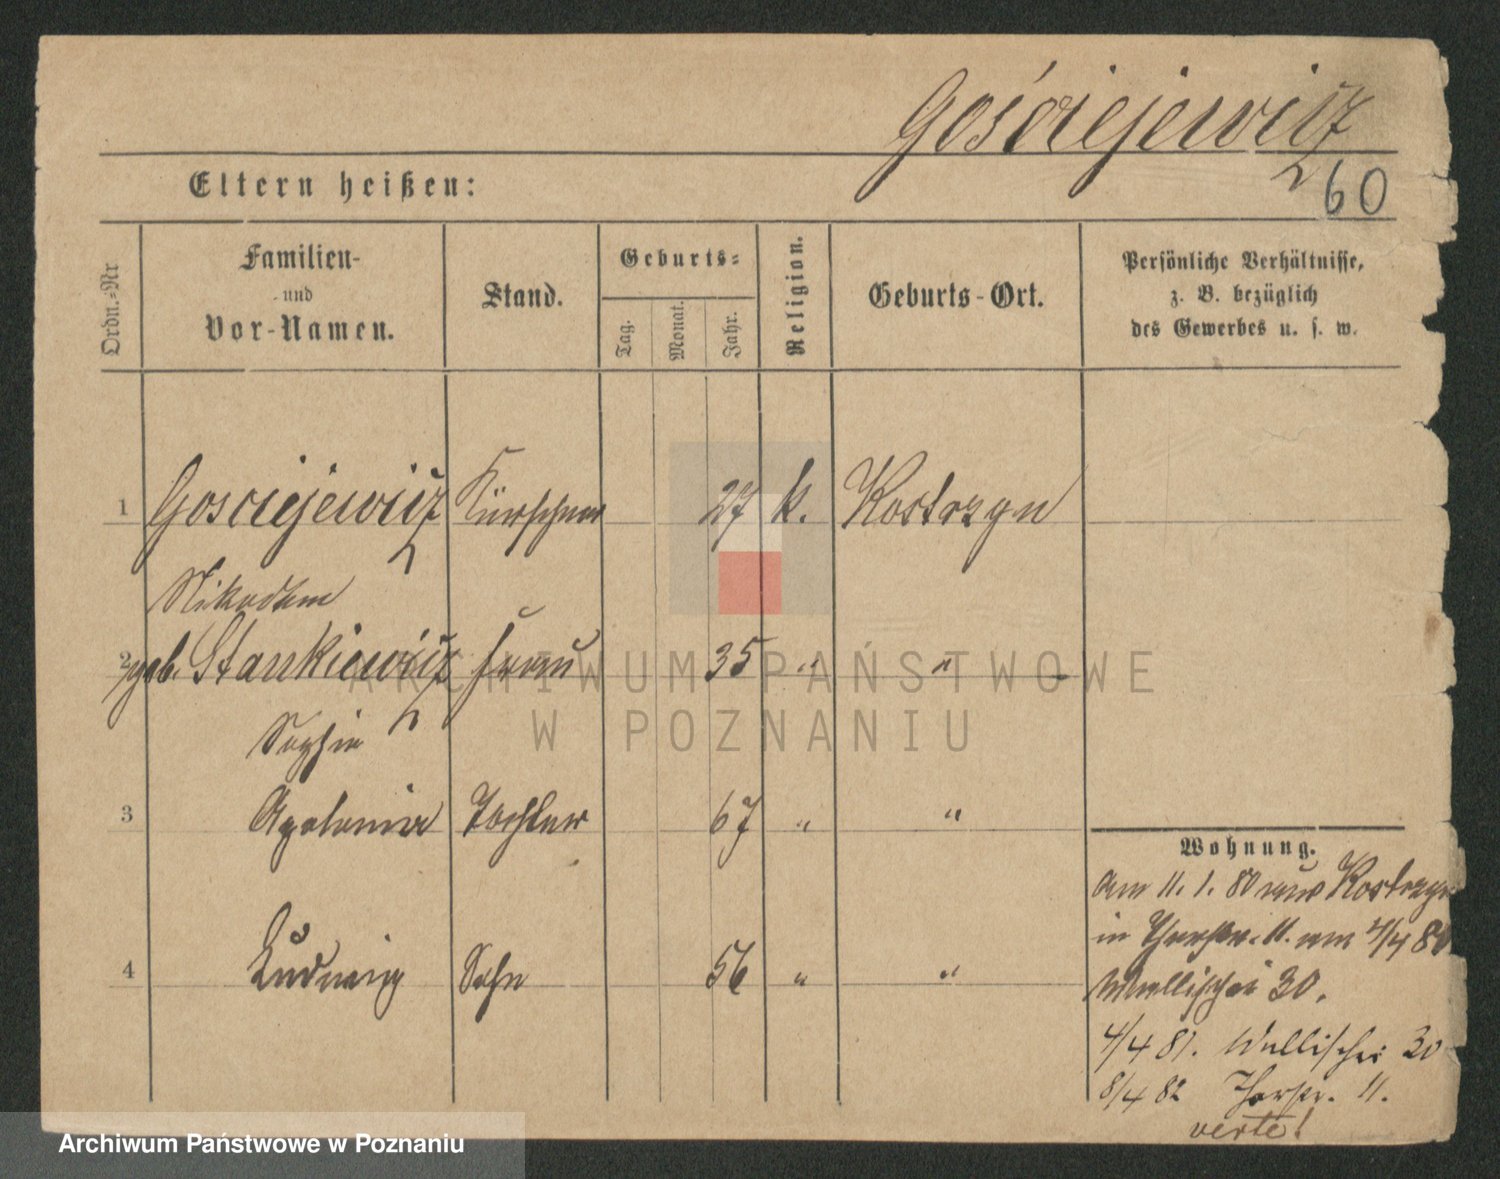 Gościejewicz
60
Eltern heißen:
Ordn.-Nr
Familien-
und
Vor-Namen.
Stand.
Geburts-
Tag.
Monat.
Jahr.
Religion.
Geburts-Ort.
Persönliche Verhältnisse,
z. B. bezüglich
des Gewerbes u. s. w.
1 Gosciejewicz Kürschner 27 k. Kostrzyn
Nikodem
2 geb. Stankiewicz Frau 35 " "
Sophie
3 Apolonia Tochter 67 " "
4 Ludwig Sohn 56 " "
Wohnung.
am 11. 1. 80 aus Kostrzyn
in Thorstr. 11. am 4/4 80
Wallischei 30.
4/4 81. Wallischei 30
8/4 82 Thorstr. 11.
verte!
ARCHIWUM PAŃSTWOWE
W POZNANIU
Archiwum Państwowe w Poznaniu